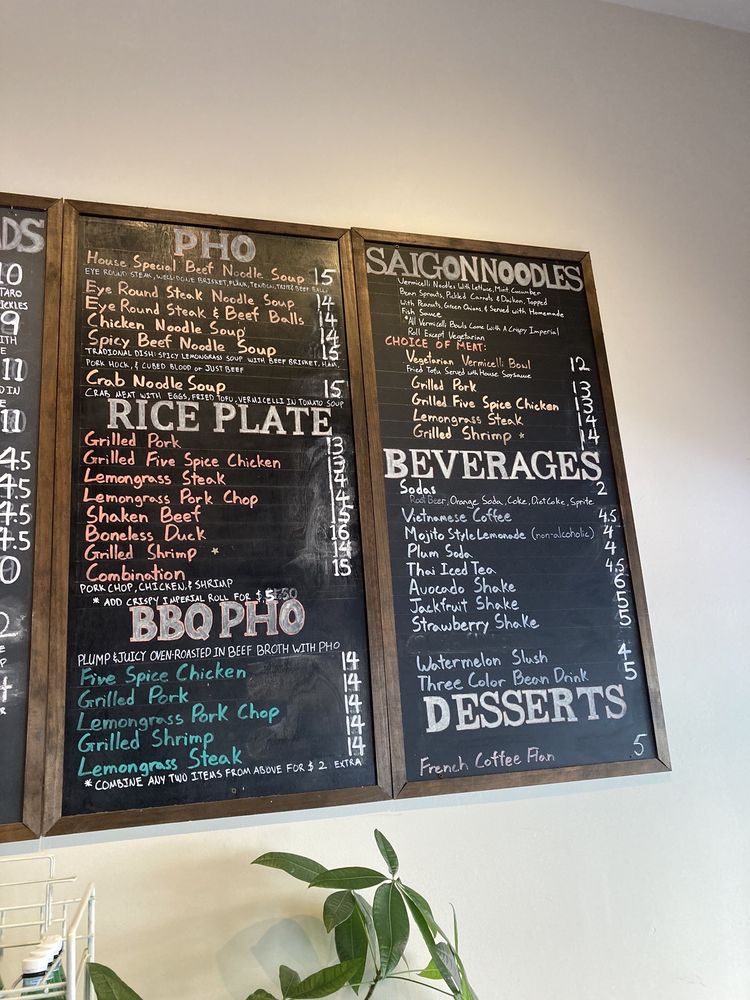 DS
10
TARO
ICKLES
9
ITH
E
11
D IN
E
10
4.5
4.5
4.5
4.5
0
2
E
P
4
PHO
House Special Beef Noodle Soup 15
EYE ROUND STEAK, WELL-DONE BRISKET, FLANK, TENDON, TRIPE, BEEF BALL
Eye Round Steak Noodle Soup 14
Eye Round Steak & Beef Balls 14
Chicken Noodle Soup 14
Spicy Beef Noodle Soup 15
TRADIONAL DISH: SPICY LEMONGRASS SOUP WITH BEEF BRISKET, HAM,
PORK HOCK, & CUBED BLOOD or JUST BEEF
Crab Noodle Soup 15
CRAB MEAT WITH EGGS, FRIED TOFU, VERMICELLI IN TOMATO SOUP
RICE PLATE
Grilled Pork 13
Grilled Five Spice Chicken 13
Lemongrass Steak 14
Lemongrass Pork Chop 14
Shaken Beef 15
Boneless Duck 16
Grilled Shrimp * 14
Combination 15
PORK CHOP, CHICKEN, & SHRIMP
* ADD CRISPY IMPERIAL ROLL FOR $
BBQ PHO
PLUMP & JUICY OVEN-ROASTED IN BEEF BROTH WITH PHO
Five Spice Chicken 14
Grilled Pork 14
Lemongrass Pork Chop 14
Grilled Shrimp 14
Lemongrass Steak 14
* COMBINE ANY TWO ITEMS FROM ABOVE FOR $ 2 EXTRA
SAIGON NOODLES
Vermicelli Noodles With Lettuce, Mint, Cucumber
Bean Sprouts, Pickled Carrots & Daikon, Topped
With Peanuts, Green Onions, & Served with Homemade
Fish Sauce
*All Vermicelli Bowls Come With A Crispy Imperial
Roll Except Vegetarian
CHOICE OF MEAT:
Vegetarian Vermicelli Bowl 12
Fried Tofu Served with House Soy Sauce
Grilled Pork 13
Grilled Five Spice Chicken 13
Lemongrass Steak 14
Grilled Shrimp * 14
BEVERAGES
Sodas 2
Root Beer, Orange Soda, Coke, Diet Coke, Sprite
Vietnamese Coffee 4.5
Mojito Style Lemonade (non-alcoholic) 4
Plum Soda 4
Thai Iced Tea 4.5
Avocado Shake 6
Jackfruit Shake 5
Strawberry Shake 5
Watermelon Slush 4
Three Color Bean Drink 5
DESSERTS
French Coffee Flan 5